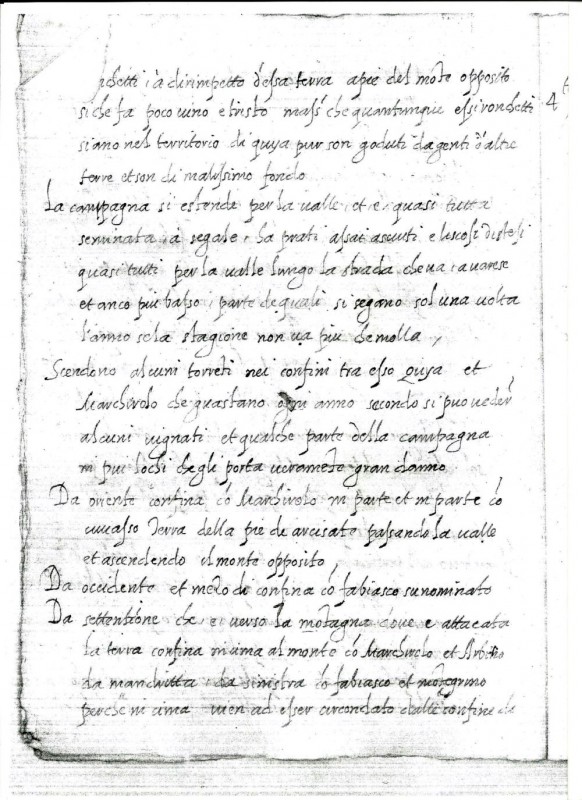 ichetti à dirimpetto dessa terra a pie del mõte opposito
si che fa poco vino e tristo mass. che quantunque essi ronchetti 4
siano nel territorio di Quya pur son goduti da genti d'altre
terre et son di malissimo fondo
La campagna si estende per la valle, et e quasi tutta
seminata à segale, ha prati assai asciuti e boscosi distesi
quasi tutti per la valle lungo la strada che va à varese
et anco piu basso, parte de quali si segano sol una volta
l'anno se la stagione non va piu che molla,
Scendono alcuni torreti nei confini tra esso Quya et
Marchirolo che guastano ogni anno secondo si puo veder
alcuni vignati et qualche parte della campagna
in piu lochi che gli porta veramẽte gran danno
Da oriente confina cõ Marchirolo in parte et in parte cõ
cuvasso Terra della pie de arcisate passando la valle
et ascendendo il monte opposito,
Da occidente et mezo di confina cõ fabiasco sunominato
Da settentione che e verso la mõtagna dove e attacata
la terra confina in cima al monte cõ Marchirolo et Arbitio
da mandritta, da sinistra cõ fabiasco et mõtegrino
perche in cima vien ad esser circondato dalle confine di